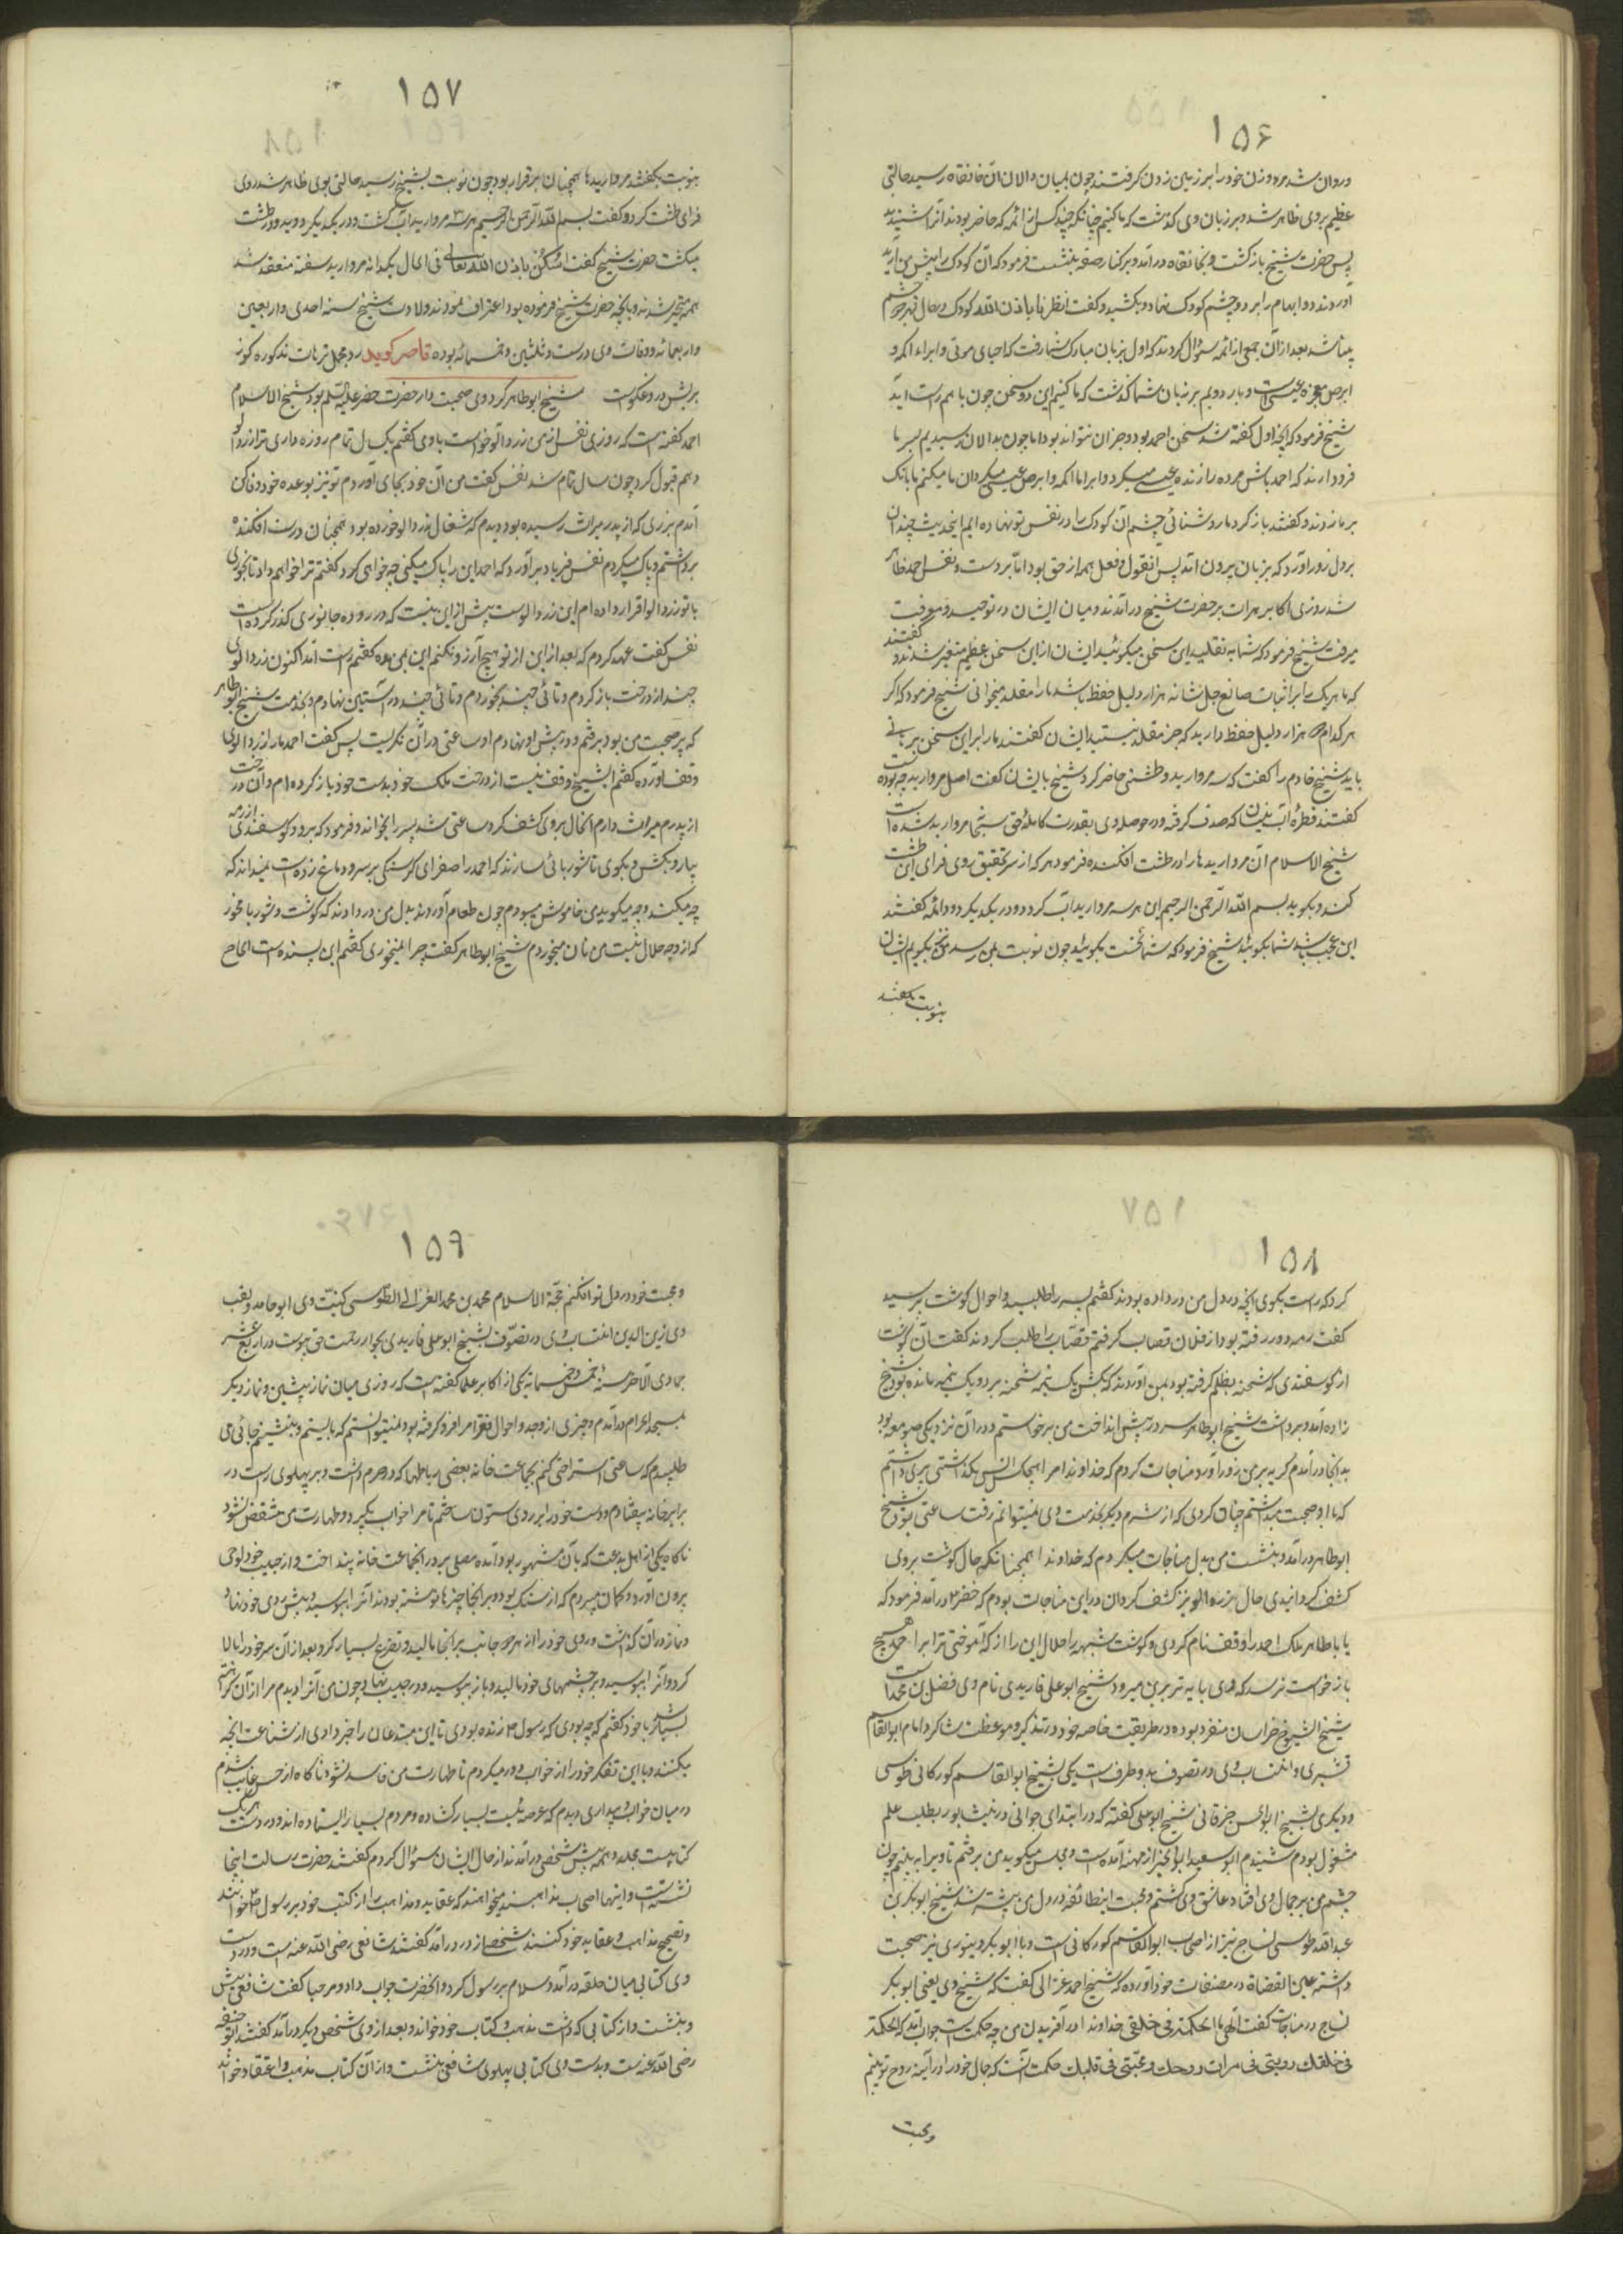 ۱۵۶
و روان شد مرد و زن خود را بر زمین زدن گرفتند چون بمیان دالان آن خانقاه رسید حالتی
عظیم بر وی ظاهر شد و بر زبان وی گذشت که ما کنیم چنانکه چند کس از ائمه که حاضر بودند آنرا شنیدند
پس حضرت شیخ بازگشت و بخانقاه درآمد و بر کنار صفه بنشست فرمود که آن کودک را پیش من آرید
آوردند دو ابهام را بر دو چشم کودک نهاد و بکشید و گفت انظر فا باذن الله کودک در حال بهر دو چشم
بینا شد بعد از آن جمعی از ائمه سؤال کردند که اول بزبان مبارک شما رفت که احیای موتی و ابراء اکمه و
ابرص معجزه عیسی است و بار دویم بر زبان شما گذشت که ما کنیم این دو سخن چون با هم راست آید
شیخ فرمود که آنچه اول گفته شد سخن احمد بود و جز آن نتواند بود اما چون بدالان رسیدیم بسر ما
فرود آرند که احمد باش مرده را زنده عیسی میکرد و ابراء اکمه و ابرص عیسی میکرد آن ما میکنم ما بانک
بر ما زدند و گفتند بازگرد ما روشنائی چشم آن کودک را در نفس تو نهاده ایم این حدیث چندان
بر دل زور آورد که بزبان بیرون آمد پس آنقول و فعل همه از حق بود اما بر دست و نفس احمد ظاهر
شد روزی اکابر هرات بر حضرت شیخ درآمدند و میان ایشان در توحید و معرفت
میرفت شیخ فرمود که شما به تقلید این سخن میگوئید ایشان از این سخن عظیم متغیر شدند و گفتند
که ما هر یک را بر اثبات صانع جل شانه هزار دلیل حفظ باشد ما را مقلد میخوانی شیخ فرمود که اگر
هر کدام ده هزار دلیل حفظ دارید که جز مقلد نیستید ایشان گفتند ما را بر این سخن برهانی
باید شیخ خادم را گفت که سه مروارید و طشتی حاضر کرد شیخ بایشان گفت اصل مروارید چه بوده است
گفتند قطره آب نیسان که صدف گرفته و در حوصله وی بقدرت کامله حق سبحانه مروارید شده است
شیخ الاسلام آن مرواریدها را در طشت افکنده فرمود هر که از سر تحقیق روی فرای این طشت
کند و بگوید بسم الله الرحمن الرحیم این هر سه مروارید آب گردد و در یکدیگر دود ائمه گفتند
این عجب باشد شما بگوئید شیخ فرمود که شما نخست بگوئید چون نوبت بمن رسد من نیز بگویم ایشان
بنوبت بگفتند
۱۵۷
بنوبت بگفتند مرواریدها همچنان برقرار بود چون نوبت بشیخ رسید حالتی بوی ظاهر شد روی
فرای طشت کرد و گفت بسم الله الرحمن الرحیم هر سه مروارید آب گشت و در یکدیگر دوید و در طشت
میگشت حضرت شیخ گفت اسکن باذن الله تعالی فی الحال یکدانه مروارید سفته منعقد شد
همه متحیر شدند و بآنچه حضرت شیخ فرموده بود اعتراف نمودند ولادت شیخ سنه احدی و اربعین
و اربعمائه و وفات وی در ست و ثلثین و خمسمائه بوده قاصر گوید در مجمل ترهات مذکوره گوز
بریش دروغگوست شیخ ابوطاهر کرد وی صحبت دار حضرت خضر علیه السلم بود شیخ الاسلام
احمد گفته است که روزی نفس از من زردآلو خواست با وی گفتم یک سال تمام روزه داری ترا زردآلو
دهم قبول کرد چون سال تمام شد نفس گفت من آن خود بجای آوردم تو نیز بوعده خود وفا کن
آمدم برزی که از پدر میراث رسیده بود دیدم که شغال زردآلو خورده بود همچنان درست افکنده
برداشتم و پاک میکردم نفس فریاد برآورد که احمد این را پاک میکنی چه خواهی کرد گفتم ترا خواهم داد تا بخوری
با تو زردآلو اقرار داده ام این زردآلوست بیش از این نیست که در روده جانوری گذر کرده است
نفس گفت عهد کردم که بعد از این از تو هیچ آرزو نکنم این بمن مده گفتم راست آمد اکنون زردآلوئی
چند از درخت باز کردم و تائی چند بخوردم و تائی چند در آستین نهادم و بخدمت شیخ ابوطاهر
که پیر صحبت من بود برفتم و در پیش او نهادم او ساعتی در آن نگریست پس گفت احمد ما را زردآلوی
وقف آورده گفتم ایشیخ وقف نیست از درخت ملک خود بدست خود باز کرده ام و آن درخت
از پدرم میراث دارم الحال بروی کشف کرد ساعتی شد پسر را بخواند و فرمود که برو گوسفندی از رمه
بیار و بکش و بگوی تا شوربائی سازند که احمد را صفرای گرسنگی بر سر و دماغ زده است نمیداند که
چه میکند و چه میگوید من خاموش میبودم چون طعام آوردند بدل من دردادند که گوشت و شوربا مخور
که از وجه حلال نیست من نان میخوردم شیخ ابوطاهر گفت چرا نمیخوری گفتم این بسنده است الحاح
۱۵۸
کرد که راست بگوی آنچه در دل من در داده بودند گفتم پسر را طلبید و احوال گوشت پرسید
گفت رمه دور رفته بود از فلان قصاب گرفتم قصاب را طلب کردند گفت آن گوشت
از گوسفندی که شحنه بظلم گرفته بود بمن آوردند که بکش یک نیمه شحنه برد و یک نیمه مانده بود شیخ
زاده آمد و برداشت شیخ ابوطاهر سر در پیش انداخت من برخاستم و در آن نزدیکی صومعه بود
بدانجا درآمدم گریه بر من زور آورد مناجات کردم که خداوندا مرا بهیچکس انس نگذاشتی پیری داشتم
که با او صحبت میداشتم چنان کردی که از شرم دیگر بخدمت وی نمیتوانم رفت ساعتی بود شیخ
ابوطاهر درآمد و بنشست من بدل مناجات میکردم که خداوندا همچنانکه حال گوشت بروی
کشف گردانیدی حال زردآلو نیز کشف گردان در این مناجات بودم که خضر ع درآمد فرمود که
یا باطاهر ملک احمد را وقف نام کردی و گوشت شبهه را حلال این را از که آموختی ترا بر احمد هیچ
بازخواست نرسد که وی بتربیت میرود شیخ ابوعلی فارمدی نام وی فضل بن محمد است
شیخ الشیوخ خراسان منفرد بوده در طریقت خاصه خود در تذکیر و موعظت شاگرد امام ابوالقاسم
قشیری و انتساب وی در تصوف بدو طرف است یکی بشیخ ابوالقاسم کورکانی طوسی
و دیگری بشیخ ابوالحسن خرقانی شیخ ابوعلی گفته که در ابتدای جوانی در نیشابور بطلب علم
مشغول بودم شنیدم ابوسعید ابوالخیر از مهنه آمده است و مجلس میگوید من برفتم تا ویرا به بینم چون
چشم من بر جمال وی افتاد عاشق وی گشتم و محبت اینطائفه در دل من بیشتر شد شیخ ابوبکر بن
عبدالله طوسی نساج نیز از اصحاب ابوالقاسم کورکانی است و با ابوبکر دینوری نیز صحبت
داشته عین القضاة در مصنفات خود آورده که شیخ احمد غزالی گفت که شیخ وی یعنی ابوبکر
نساج در مناجات گفت الهی ما الحکمة فی خلقی خداوندا در آفریدن من چه حکمت است جواب آمد که الحکمة
فی خلقک رویتی فی مرات روحک و محبتی فی قلبک حکمت آنست که جمال خود را در آینه روح تو بینم
و محبت
۱۵۹
و محبت خود در دل تو افکنم حجة الاسلام محمد بن محمد الغزالی الطوسی کنیت وی ابوحامد و لقب
وی زین الدین انتساب وی در تصوف بشیخ ابوعلی فارمدی بجوار رحمت حق پیوست در رابع عشر
جمادی الآخر سنه خمس و خمسمائه یکی از اکابر علما گفته است که روزی میان نماز پیشین و نماز دیگر
بمسجد الحرام درآمدم و چیزی از وجد و احوال فقرا مرا فرو گرفته بود نمیتوانستم که بایستم و بنشینم جائی می
طلبیدم که ساعتی استراحتی کنم بجماعت خانه بعضی رباطها که در حرم داشت و بر پهلوی راست در
برابر خانه بیفتادم و دست خود را بر روی ستون ساختم تا مرا خواب نگیرد و طهارت من منتقض نشود
ناگاه یکی از اهل بدعت که بآن مشهور بود آمده مصلی بر در آنجماعت خانه بینداخت و از جیب خود لوحی
بیرون آورد و گمان میبردم که از سنگ بود و بر آنجا چیزها نوشته بودند آنرا ببوسید و پیش روی خود نهاد
و نماز در آن گذاشت و روی خود را از هر دو جانب بر آنجا مالید و تضرع بسیار کرد و بعد از آن سر خود را بالا
کرد و آنرا ببوسید و بر چشمهای خود مالید و باز ببوسید و در جیب نهاد و چون من آنرا دیدم مرا از آن کراهتی
بسیار شد با خود گفتم که چه بودی که رسول ص زنده بودی تا این مبتدعان را خبر دادی از شناعت آنچه
میکنند و با این تفکر خود را از خواب دور میکردم تا طهارت من فاسد نشود ناگاه از حس غایب شدم
در میان خواب و بیداری دیدم که عرصه ایست بسیار گشاده و مردم بسیار ایستاده اند و در دست هر یک
کتابیست مجلد و همه پیش شخصی درآمدند از حال ایشان سؤال کردم گفتند حضرت رسالت اینجا
نشسته است و اینها اصحاب مذاهبند میخواهند که عقاید و مذاهب را از کتب خود بر رسول ص خوانند
و تصحیح مذاهب و عقاید خود کنند شخصی از در درآمد گفتند شافعی رضی الله عنه است و در دست
وی کتابی میان حلقه درآمد و سلام بر رسول کرد و آنحضرت جواب داد و مرحبا گفت شافعی پیش
و بنشست و از کتابی که داشت مذهب و کتاب خود خواند و بعد از وی شخص دیگر درآمد گفتند ابوحنیفه
رضی الله عنه است و بدست وی کتابی پهلوی شافعی بنشست و از آن کتاب مذهب و اعتقاد خواند